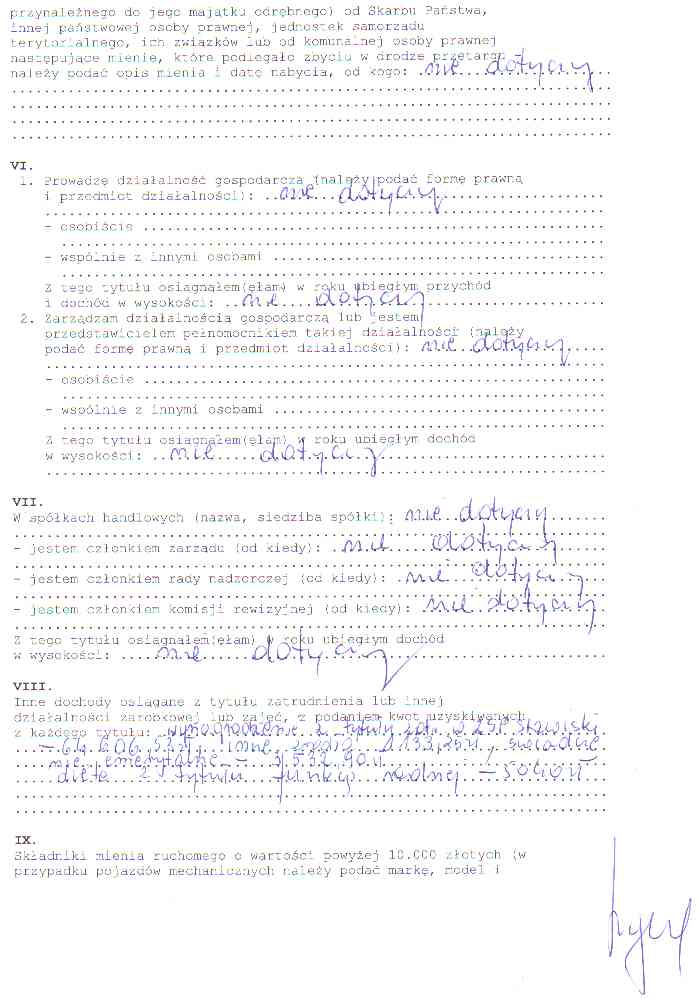 przynależnego do jego majątku odrębnego) od Skarbu Państwa,
innej państwowej osoby prawnej, jednostek samorządu
terytorialnego, ich związków lub od komunalnej osoby prawnej
następujące mienie, które podlegało zbyciu w drodze przetargu –
należy podać opis mienia i datę nabycia, od kogo: nie dotyczy
VI.
1. Prowadzę działalność gospodarczą (należy podać formę prawną
i przedmiot działalności): nie dotyczy
- osobiście
- wspólnie z innymi osobami
Z tego tytułu osiągnąłem(ęłam) w roku ubiegłym przychód
i dochód w wysokości: nie dotyczy
2. Zarządzam działalnością gospodarczą lub jestem
przedstawicielem pełnomocnikiem takiej działalności (należy
podać formę prawną i przedmiot działalności): nie dotyczy
- osobiście
- wspólnie z innymi osobami
Z tego tytułu osiągnąłem(ęłam) w roku ubiegłym dochód
w wysokości: nie dotyczy
VII.
W spółkach handlowych (nazwa, siedziba spółki): nie dotyczy
- jestem członkiem zarządu (od kiedy): nie dotyczy
- jestem członkiem rady nadzorczej (od kiedy): nie dotyczy
- jestem członkiem komisji rewizyjnej (od kiedy): nie dotyczy
Z tego tytułu osiągnąłem(ęłam) w roku ubiegłym dochód
w wysokości: nie dotyczy
VIII.
Inne dochody osiągane z tytułu zatrudnienia lub innej
działalności zarobkowej lub zajęć, z podaniem kwot uzyskiwanych
z każdego tytułu: wynagrodzenie z tytułu zatr. w
inne świadcze
nie emerytalne –
dieta z tytułu funkcji radnej –
IX.
Składniki mienia ruchomego o wartości powyżej 10.000 złotych (w
przypadku pojazdów mechanicznych należy podać markę, model i